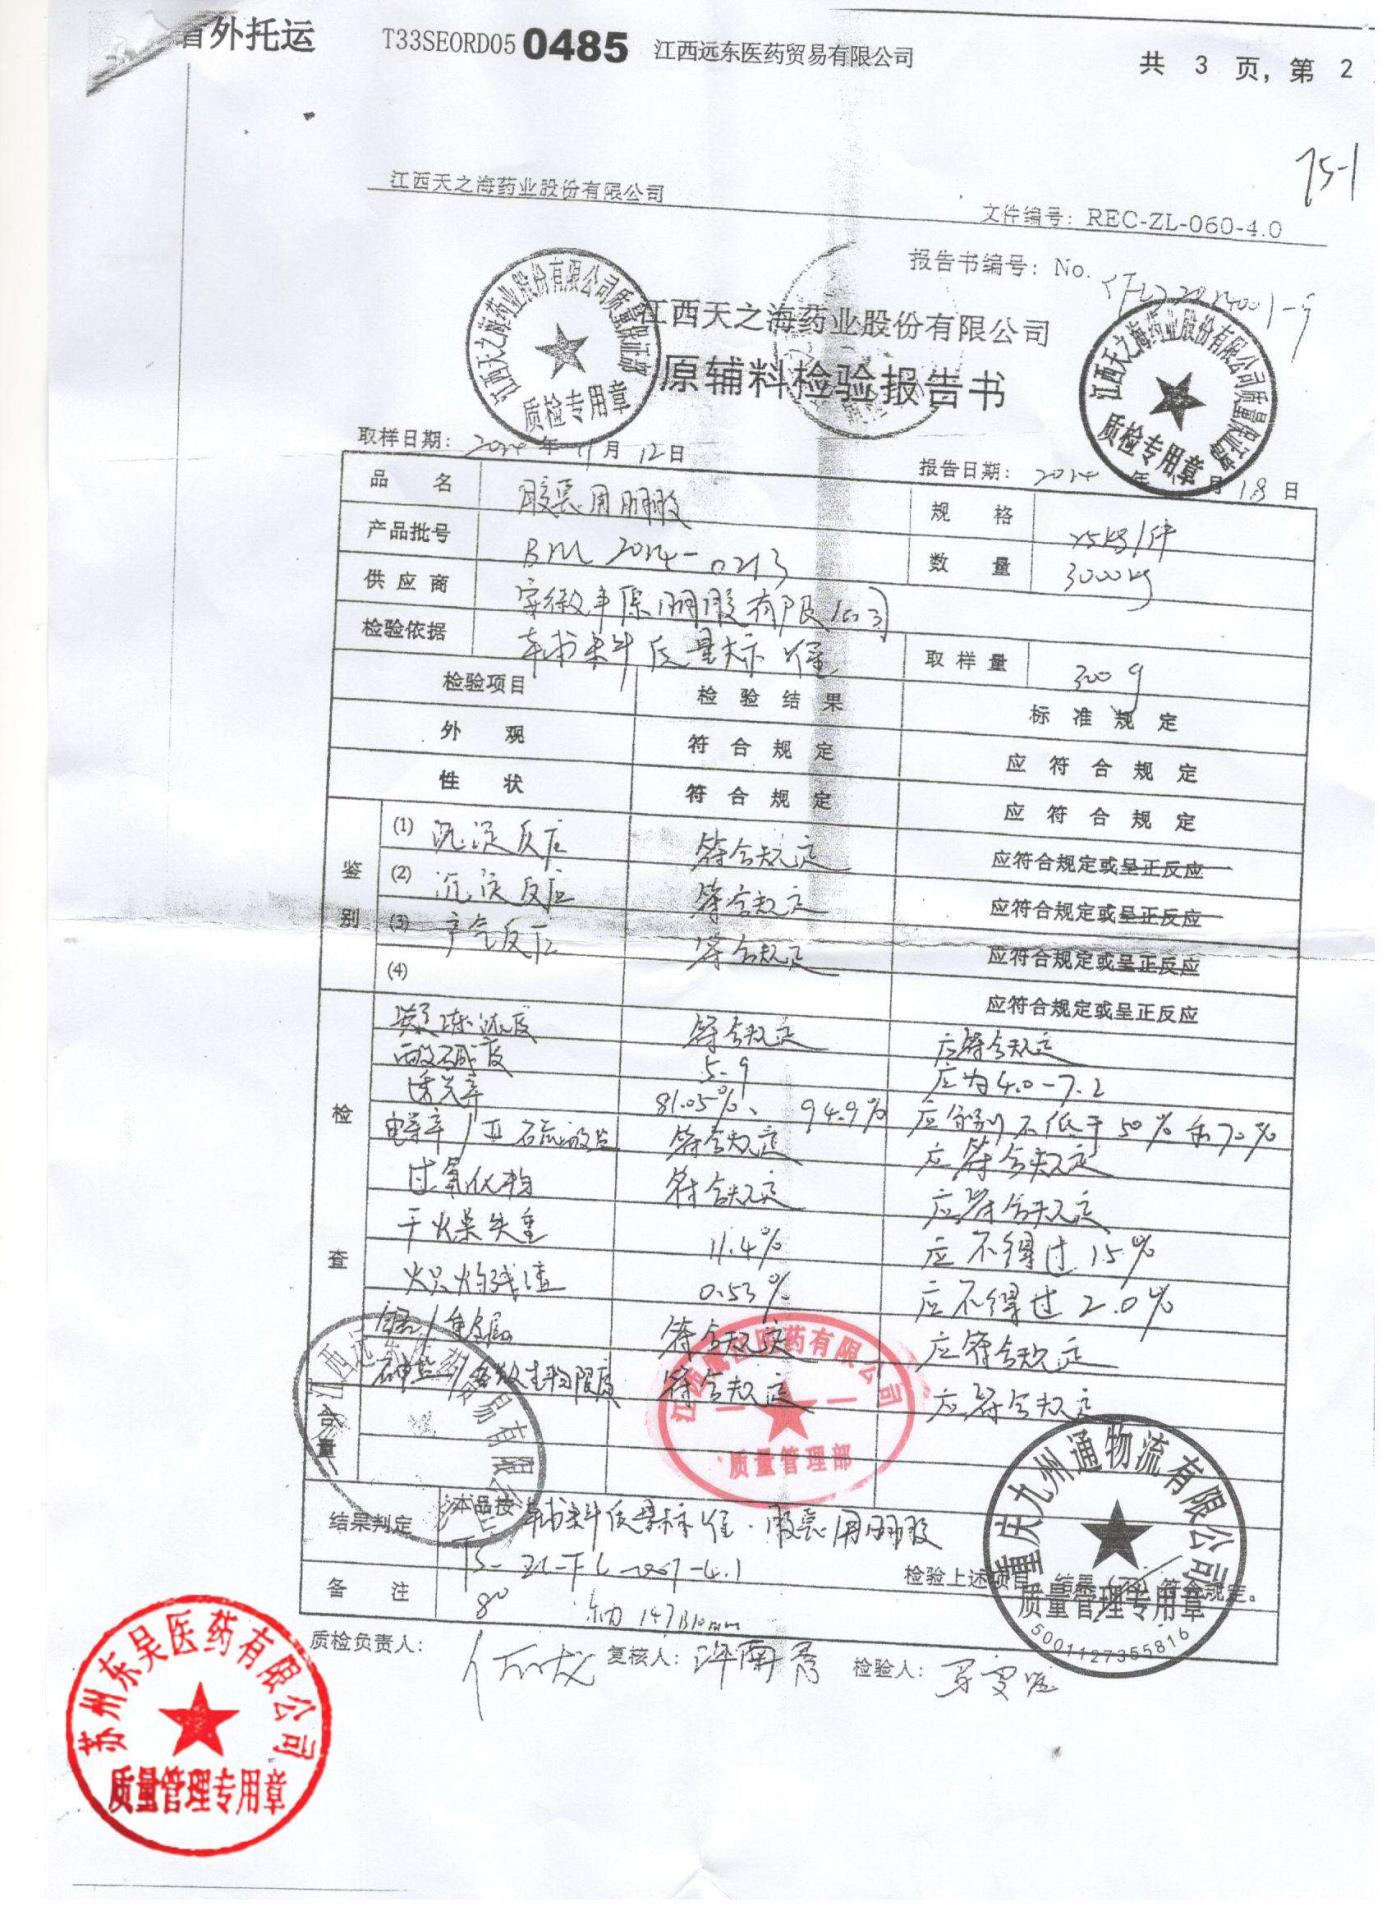 省外托运 T33SEORD05 0485 江西远东医药贸易有限公司 共 3 页，第 2
75-1
江西天之海药业股份有限公司
文件编号：REC-ZL-060-4.0
报告书编号：No.
江西天之海药业股份有限公司质量保证部
质检专用章
江西天之海药业股份有限公司
原辅料检验报告书
江西天之海药业股份有限公司质量保证部
质检专用章
取样日期：2014年 11月 12日
报告日期：2014年 月 18日
品 名 胶囊用明胶 规 格 25kg/件
产品批号 BM 2014-0213 数 量 3000kg
供应商 安徽丰原明胶有限公司
检验依据 辅料质量标准 取样量 300g
检验项目 检验结果 标准规定
外 观 符合规定 应符合规定
性 状 符合规定 应符合规定
鉴别
(1) 沉淀反应 符合规定 应符合规定或呈正反应
(2) 沉淀反应 符合规定 应符合规定或呈正反应
(3) 产气反应 符合规定 应符合规定或呈正反应
(4) 应符合规定或呈正反应
检查
凝冻浓度 符合规定 应符合规定
酸碱度 5.9 应为4.0-7.2
透光率 81.05%、94.9% 应分别不低于50%和70%
电导率/亚硫酸盐 符合规定 应符合规定
过氧化物 符合规定 应符合规定
干燥失重 11.4% 应不得过15%
炽灼残渣 0.53% 应不得过2.0%
铬/重金属 符合规定 应符合规定
砷盐/微生物限度 符合规定 应符合规定
含量
江西远东医药贸易有限公司
医药有限公司
质量管理部
结果判定 本品按 辅料质量标准·胶囊用明胶
检验上述项目 结果（不）符合规定。
备 注
重庆九州通物流有限公司
质量管理专用章
5001127355816
质检负责人： 复核人： 检验人：
苏州东吴医药有限公司
质量管理专用章